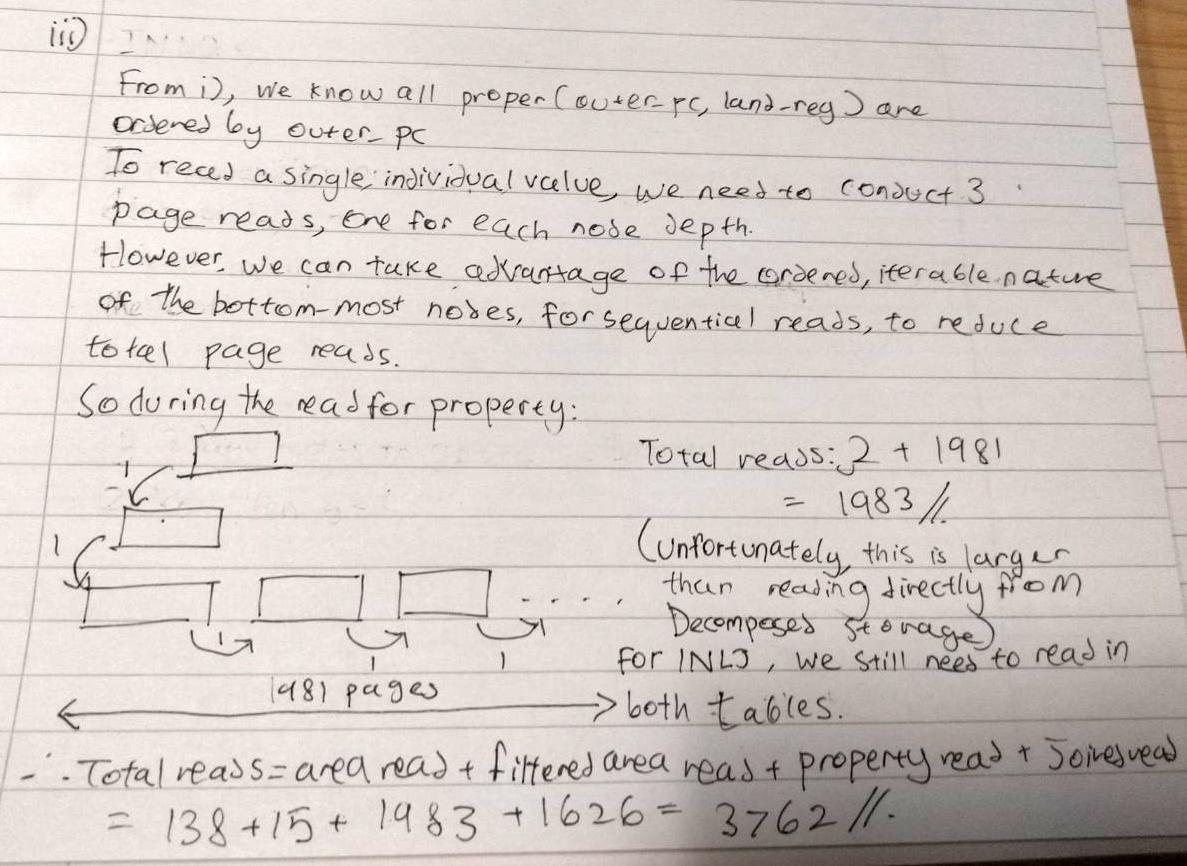 iii)
From i), we know all proper(outer-pc, land-reg) are
ordered by outer-pc
To read a single individual value, we need to conduct 3
page reads, one for each node depth.
However, we can take advantage of the ordered, iterable nature
of the bottom-most nodes, for sequential reads, to reduce
total page reads.
So during the read for property:
Total reads: 2 + 1981
= 1983 //.
(Unfortunately, this is larger
than reading directly from
Decomposed storage)
for INLJ, we still need to read in
both tables.
1
1
1
1
1
1981 pages
∴ Total reads = area read + filtered area read + property read + Joined read
= 138 + 15 + 1983 + 1626 = 3762 //.